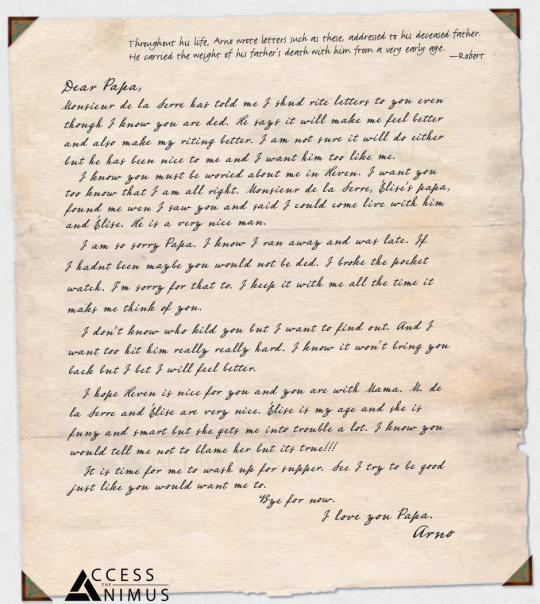 Throughout his life, Arno wrote letters such as these, addressed to his deceased father.
He carried the weight of his father's death with him from a very early age.
—Robert
Dear Papa,
Monsieur de la Serre has told me I shud rite letters to you even
though I know you are ded. He says it will make me feel better
and also make my riting better. I am not sure it will do either
but he has been nice to me and I want him too like me.
I know you must be woried about me in Heven. I want you
too know that I am all right. Monsieur de la Serre, Élise's papa,
found me wen I saw you and said I could come live with him
and Élise. He is a very nice man.
I am so sorry Papa. I know I ran away and was late. If
I hadnt been maybe you would not be ded. I broke the pocket
watch. I'm sorry for that to. I keep it with me all the time it
maks me think of you.
I don't know who kild you but I want to find out. And I
want too hit him really really hard. I know it won't bring you
back but I bet I will feel better.
I hope Heven is nice for you and you are with Mama. M. de
la Serre and Élise are very nice. Élise is my age and she is
funy and smart but she gets me into trouble a lot. I know you
would tell me not to blame her but its true!!!
It is time for me to wash up for supper. See I try to be good
just like you would want me to.
Bye for now.
I love you Papa.
Arno
ACCESS
THE
ANIMUS